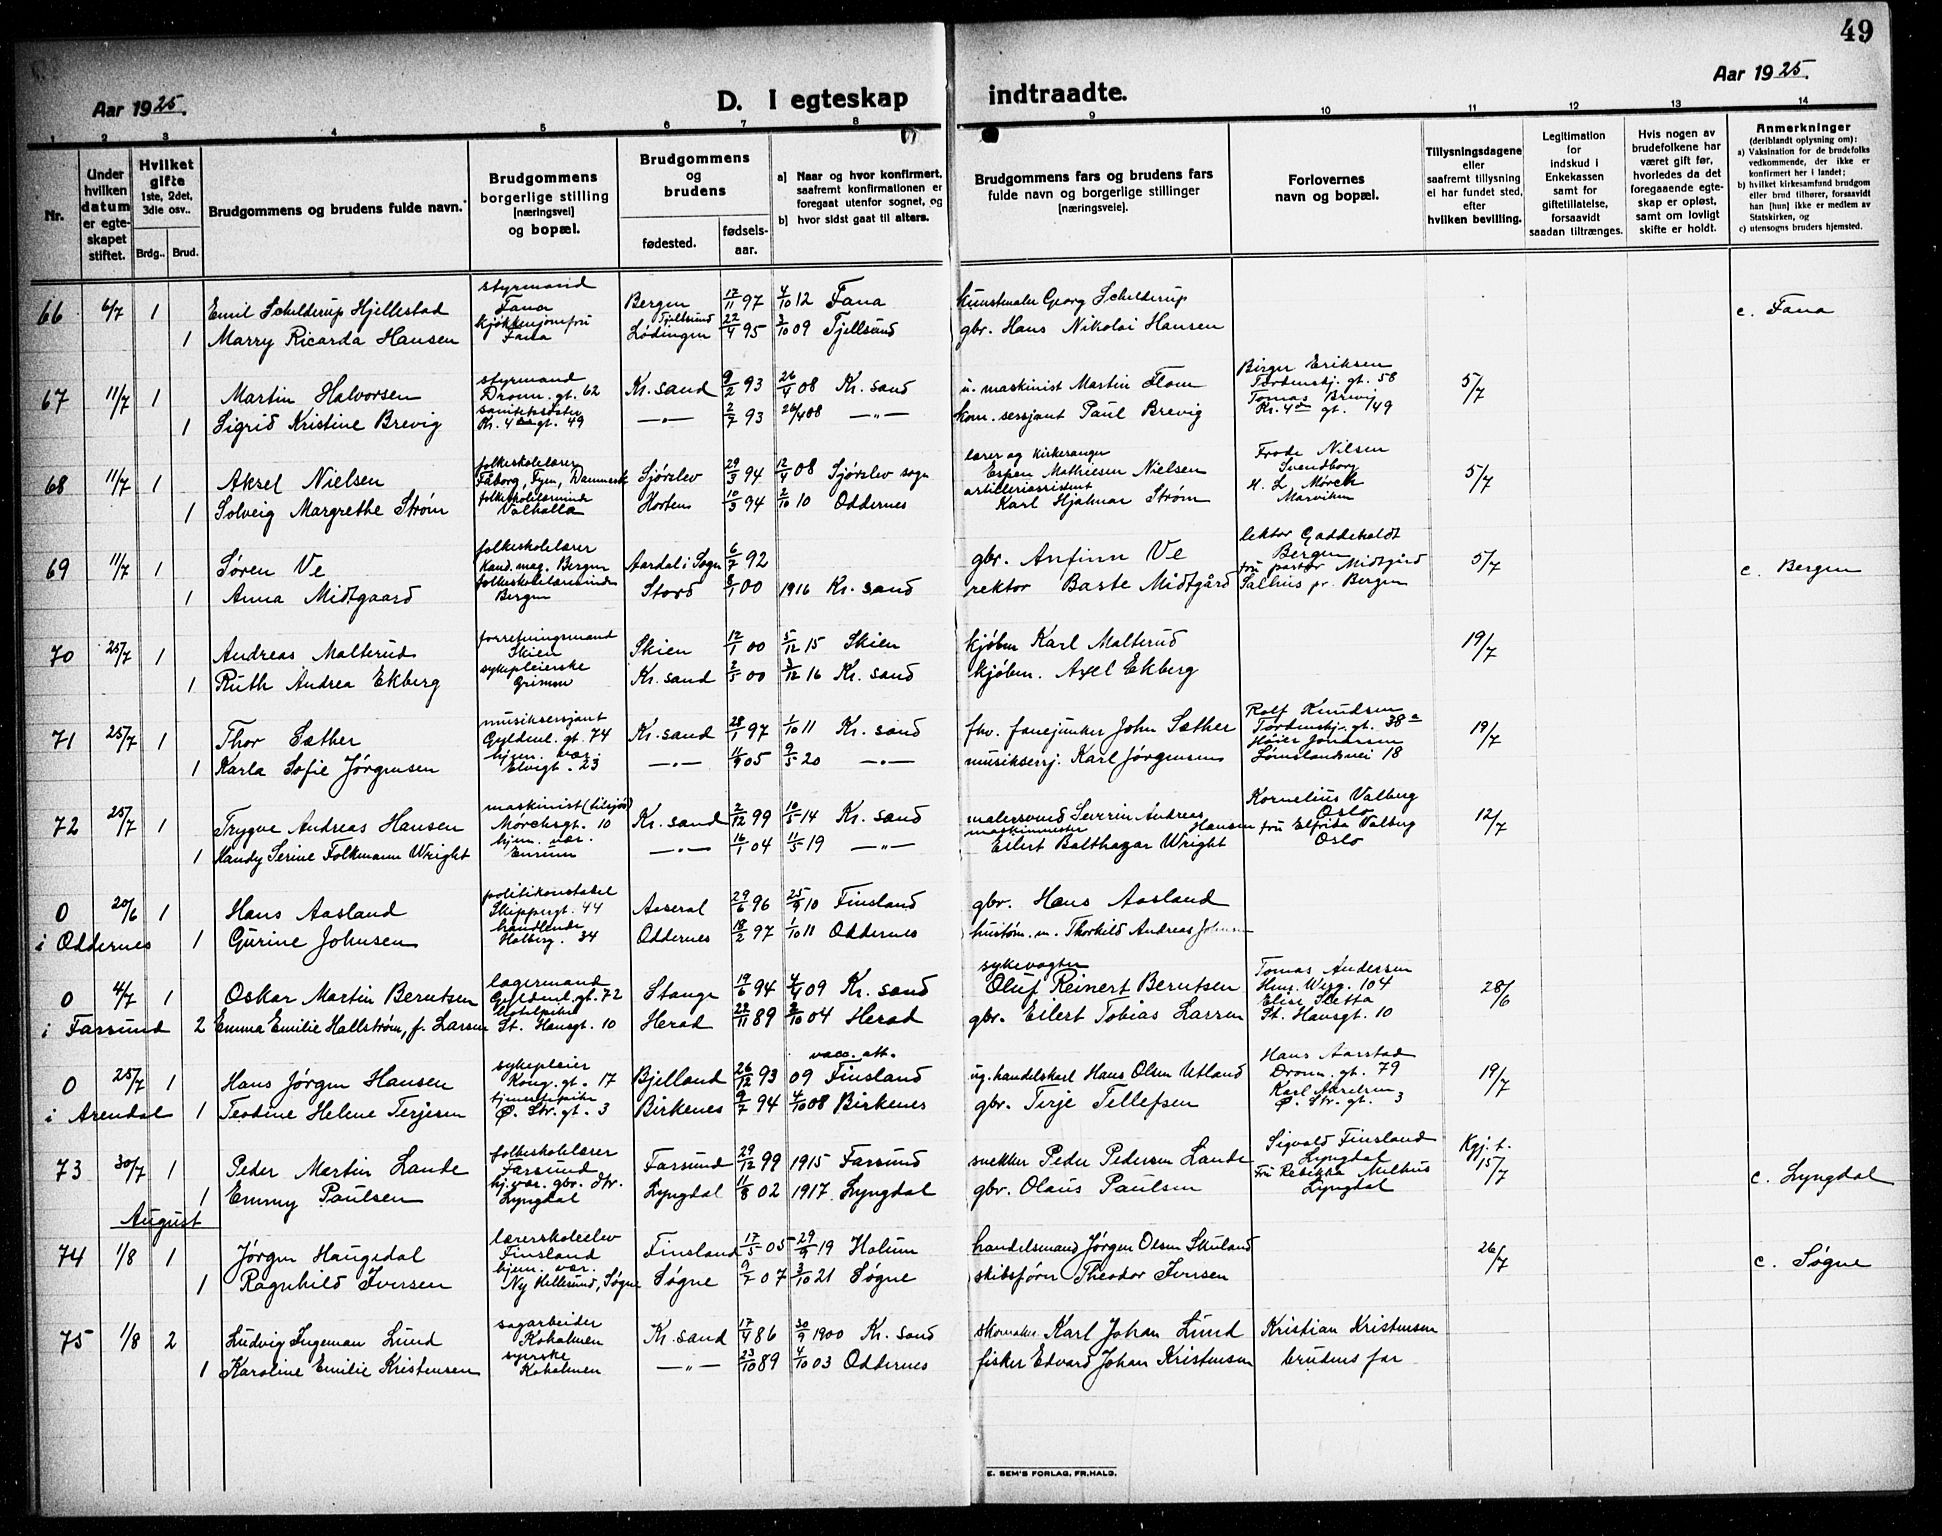 49
Aar 1925.
D. I egteskap indtraadte.
Aar 1925.
1 2 3 4 5 6 7 8 9 10 11 12 13 14
Nr.
Under hvilken datum er egteskapet stiftet.
Hvilket gifte 1ste, 2det, 3die osv.. Brdg.. Brud.
Brudgommens og brudens fulde navn.
Brudgommens borgerlige stilling [næringsvei] og bopæl.
Brudgommens og brudens
fødested. fødsels-aar.
a) Naar og hvor konfirmert, saafremt konfirmationen er foregaat utenfor sognet, og
b) hvor sidst gaat til alters.
Brudgommens fars og brudens fars fulde navn og borgerlige stillinger [næringsveie].
Forlovernes navn og bopæl.
Tillysningsdagene eller saafremt tillysning ei har fundet sted, efter hvilken bevilling.
Legitimation for indskud i Enkekassen samt for giftetillatelse, forsaavidt saadan tiltrænges.
Hvis nogen av brudefolkene har været gift før, hvorledes da det foregaaende egteskap er opløst, samt om lovligt skifte er holdt.
Anmerkninger (deriblandt oplysning om):
a) Vaksination for de brudefolks vedkommende, der ikke er konfirmert her i landet;
b) hvilket kirkesamfund brudgom eller brud tilhører, forsaavidt han [hun] ikke er medlem av Statskirken, og
c) utensogns bruders hjemsted.
66 6/7 1 Emil Schilderup Hjellestad styrmand Fana Bergen 17/11 97 4/10 12 Fana kunstmaler Georg Schilderup c. Fana
1 Marry Ricarda Hansen kjøkkenjomfru Fana Lødingen Tjellsund 22/4 95 3/10 09 Tjellsund gbr. Hans Nikolai Hansen
67 11/7 1 Martin Halvorsen styrmand Dronn. gt. 62 Kr. sand 9/2 93 26/4 08 Kr. sand u. maskinist Martin Flom Birger Eriksen Tordenskj. gt. 58 5/7
1 Sigrid Kristine Brevig Kr. 4de gt. 49 —„— 2/7 93 26/4 08 —„— kom. sersjant Paul Brevig Tomas Brevig Kr. 4de gt. 149
68 11/7 1 Aksel Nielsen folkeskolelærer Faborg, Fyen, Danmark Sjørslev 29/3 94 12/4 08 Sjørslev sogn lærer og kirkesanger Espen Mathiesen Nielsen Frode Nilsen Svendborg 5/7
1 Solveig Margrethe Strøm folkeskolelærerinde Valhalla Horten 10/3 94 2/10 10 Oddernes Karl Hjalmar Strøm H. L. Mørch Marviken
69 11/7 1 Søren Ve folkeskolelærer Kand. mag. Bergen Aardal i Sogn 6/7 92 gbr. Anfinn Ve lektor Gaddeholdt Bergen 5/7 c. Bergen
1 Anna Midtgaard folkeskolelærerinde Bergen Stord 8/1 00 1916 Kr. sand rektor Baste Midtgård fru pastor Midtgård Salhus pr. Bergen
70 25/7 1 Andreas Malterud forretningsmand Skien Skien 12/1 00 5/12 15 Skien kjøbm Karl Malterud 19/7
1 Ruth Andrea Ekberg sykepleierske Grimm Kr. sand 2/5 00 3/12 16 Kr. sand kjøbm. Axel Ekberg
71 25/7 1 Thor Sæther musiksersjant Gyldenl. gt. 74 Kr. sand 28/1 97 1/10 11 Kr. sand fhv. fanejunker John Sæther Rolf Knudsen Tordenskj. gt. 38a 19/7
1 Karla Sofie Jørgensen hjem. vær. Elvegt. 23 —„— 11/9 05 9/5 20 —„— musikserj. Karl Jørgensen Høier Jonassen 18
72 25/7 1 Trygve Andreas Hansen maskinist (tilsjøs) Mørchsgt. 10 Kr. sand 2/12 99 10/5 14 Kr. sand malersvend Severin Andreas Hansen Kornelius Valberg Oslo 12/7
1 Handy Serine Folkmann Wright hjem. vær. —„— 16/1 04 11/5 19 —„— maskinmester Eilert Balthazar Wright fru Elfrida Valberg Oslo
0 20/6 1 Hans Aasland politikonstabel Skippergt. 44 Aaseral 29/6 96 25/9 10 Finsland gbr. Hans Aasland
i Oddernes 1 Gurine Johnsen handlende Holberg. 34 Oddernes 18/2 97 1/10 11 Oddernes hustøm. m. Thorkild Andreas Johnsen
0 4/7 1 Oskar Martin Berntsen lagermand Gyldenl. gt. 72 Stange 19/6 94 4/4 09 Kr. sand sykevogter Oluf Reinert Berntsen Tomas Andersen Hen. Werg. 104 28/6
i Farsund 2 Emma Emilie Hallstrøm, f. Larsen St. Hansgt. 10 Herad 22/11 89 2/10 04 Herad gbr. Eilert Tobias Larsen Elise Sletta St. Hansgt. 10
0 25/7 1 Hans Jørgen Hansen sykepleier Kong. gt. 17 Bjelland 26/12 93 vacc. att. 09 Finsland ug. handelskarl Hans Olsen Utland Hans Aarstad Dronn. gt. 79 19/7
i Arendal 1 Teodine Helene Terjesen tjenestepike Ø. Str. gt. 3 Birkenes 9/7 94 4/10 08 Birkenes gbr. Terje Tellefsen Karl Ø. Str. gt. 3
73 30/7 1 Peder Martin Lande folkeskolelærer Farsund Farsund 29/12 99 1915 Farsund snekker Peder Pedersen Lande Sigvald Finsland Lyngdal Kgj. t. 15/7 c. Lyngdal
1 Emmy Paulsen hj. vær. gbr. dtr. Lyngdal Lyngdal 11/8 02 1917 Lyngdal gbr. Olaus Paulsen Fru Rebekka Melhus Lyngdal
August
74 1/8 1 Jørgen Haugsdal lærerskoleelev Finsland Finsland 17/5 05 29/9 19 Holum handelsmand Jørgen Olsen Skuland 26/7 c. Søgne
1 Ragnhild Iversen hjem. vær. Ny Hellesund, Søgne Søgne 9/7 07 3/10 21 Søgne skibsfører Theodor Iversen
75 1/8 2 Ludvig Ingeman Lund sagarbeider Kokolmen Kr. sand 17/4 86 30/9 1900 Kr. sand skomaker Karl Johan Lund Kristian Kristensen
1 Karoline Emilie Kristensen syerske Kokolmen —„— 23/10 89 4/10 03 Oddernes fisker Edvard Johan Kristensen brudens far
E. SEM'S FORLAG, FR.HALD.